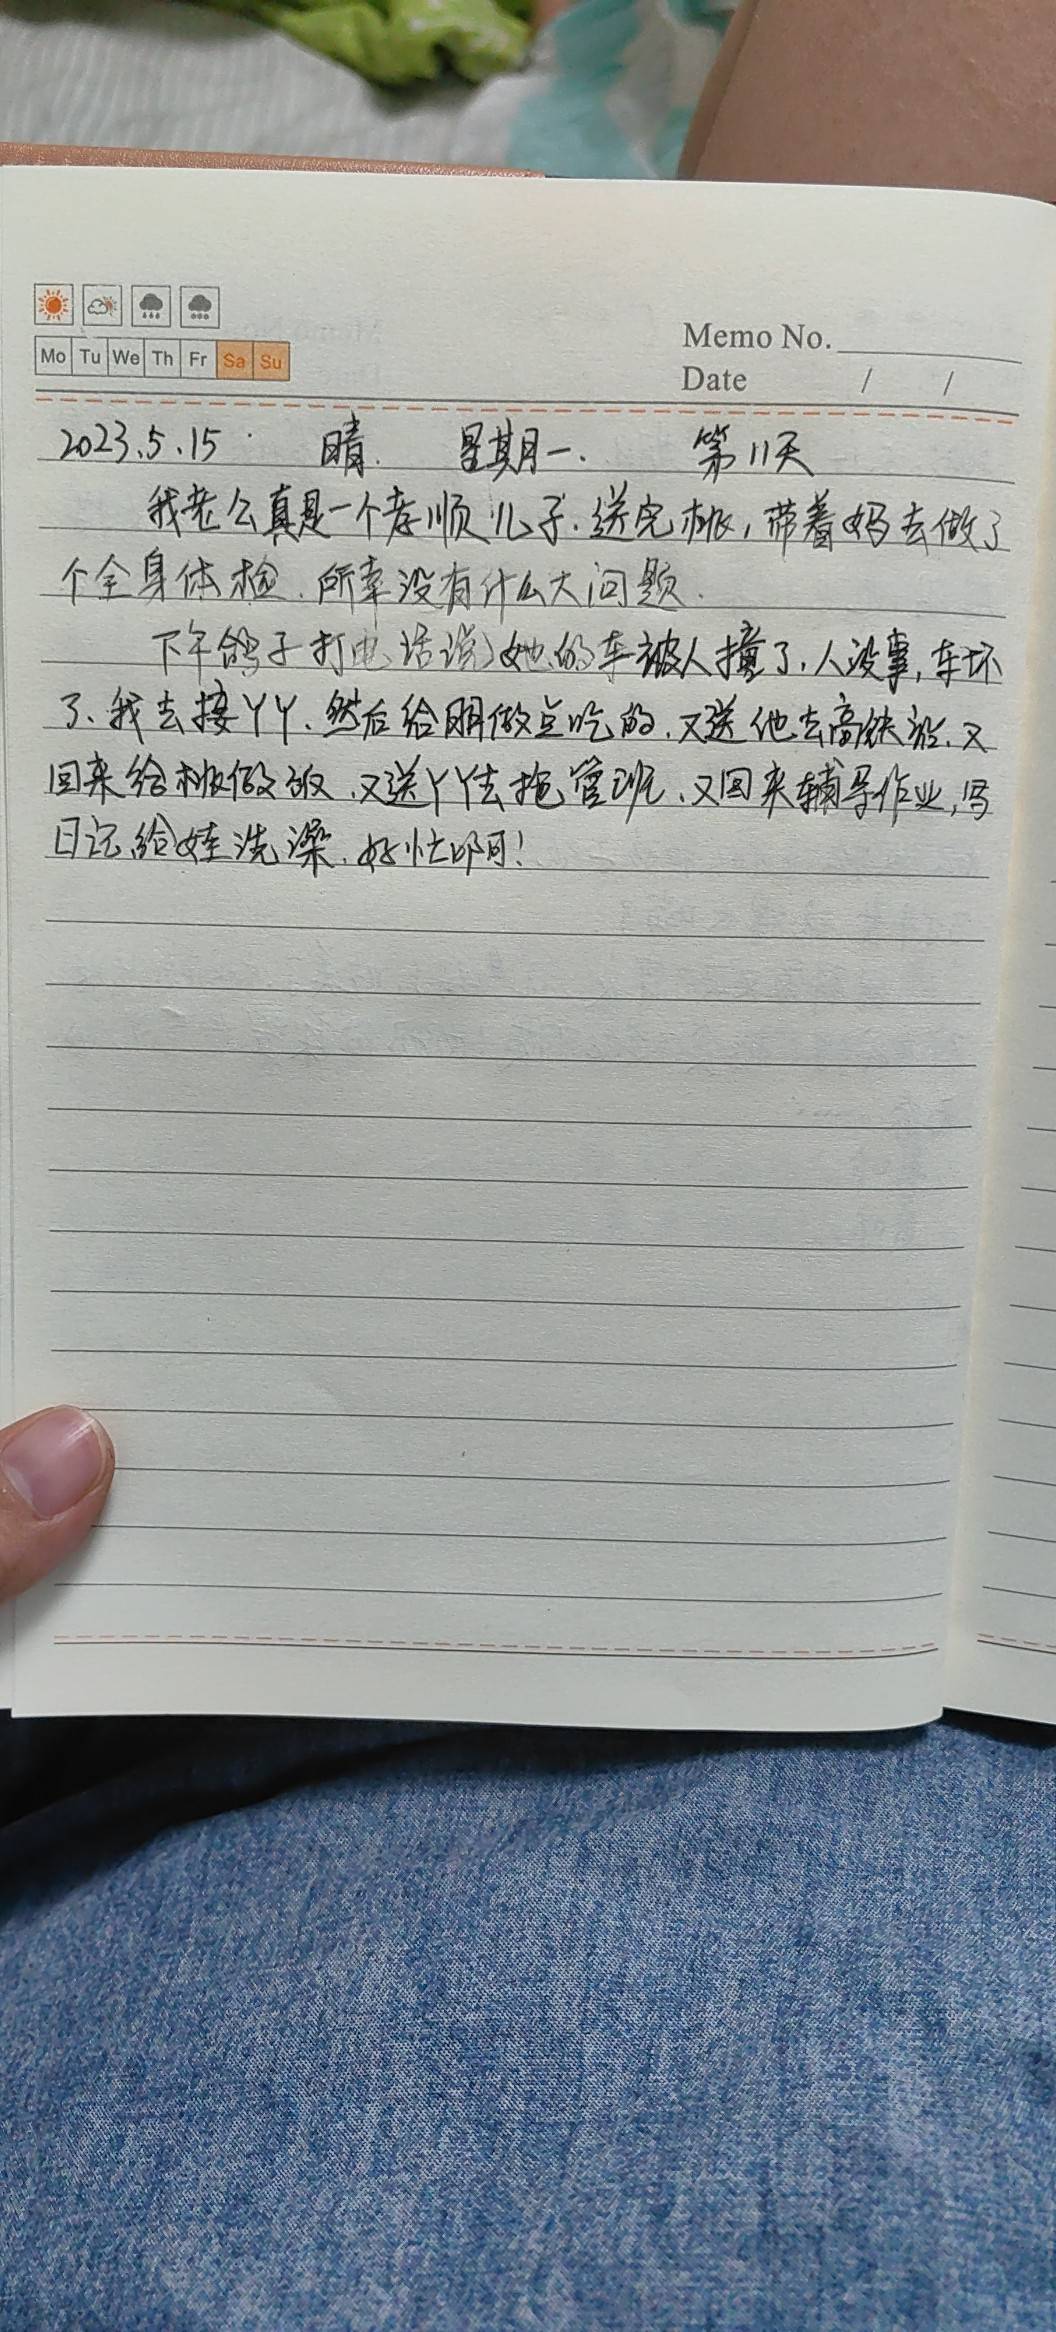 Mo Tu We Th Fr Sa Su
Memo No.
Date / /
2023.5.15 晴. 星期一. 第11天
我老公真是一个孝顺儿子.送完桃,带着妈去做了
个全身体检.所幸没有什么大问题.
下午鸽子打电话说她的车被人撞了.人没事,车坏
了、我去接丫丫.然后给朋做点吃的.又送他去高铁站.又
回来给桃做饭.又送丫丫去托管班、又回来辅导作业,写
日记,给娃洗澡.好忙啊!